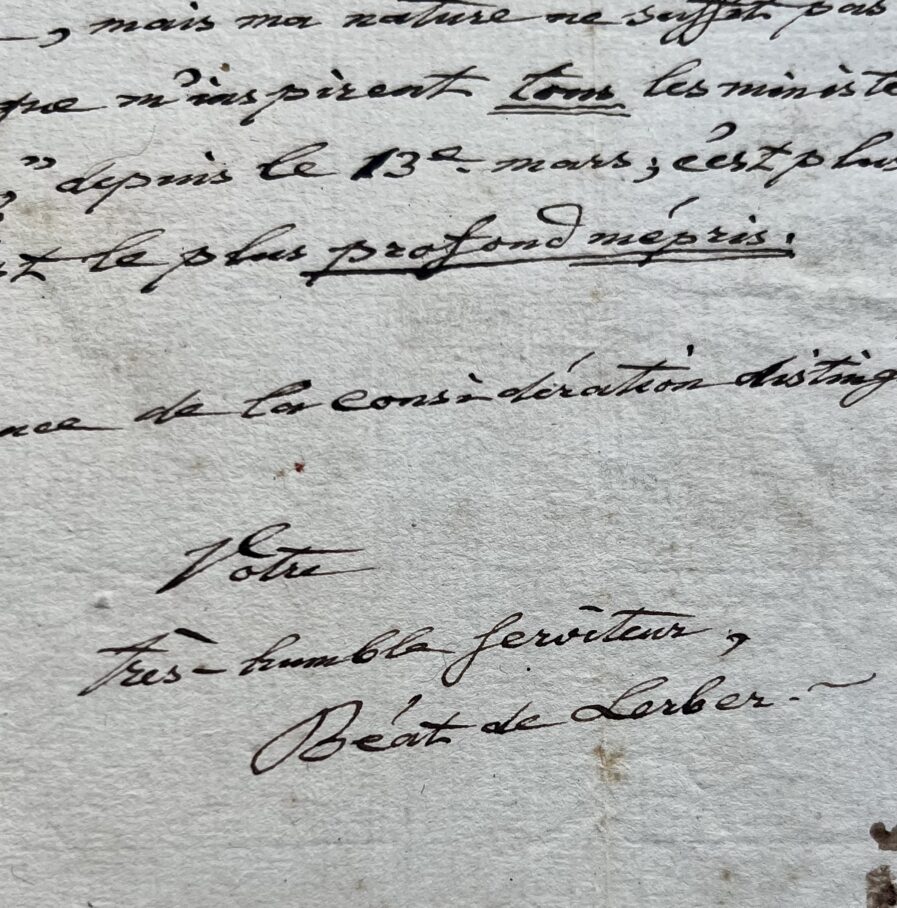 , mais ma nature ne suffit pas
que m'inspirent tous les ministe
" depuis le 13e mars, c'est plus
st le plus profond mépris.
nce de la considération disting
Votre
très-humble serviteur,
Béat de Lerber.